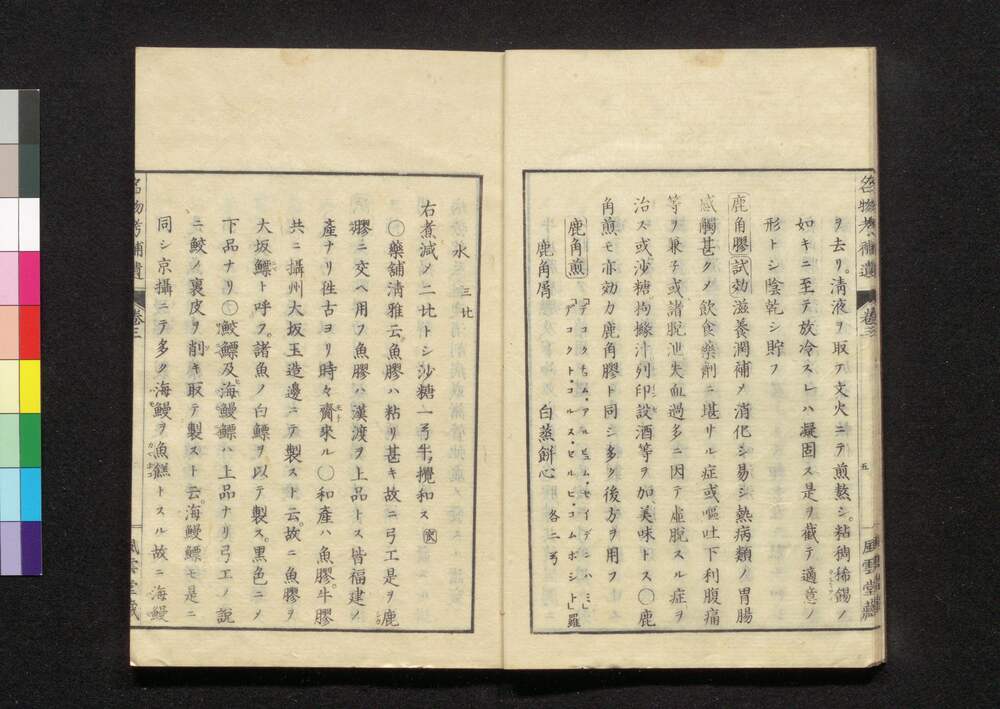 名物考補遺 卷三 五 風雲堂藏
ヲ去リ。清液ヲ取テ文火ニテ煎熬シ。粘稠稀餳ノ
如キニ至テ放冷スレハ凝固ス是ヲ截テ適意ノ
形トシ陰乾シ貯フ
鹿角膠 試効 滋養潤補メ消化シ易シ熱病類ノ胃腸
感觸甚クメ飲食藥劑ニ堪サル症或嘔吐下利腹痛
等ヲ兼子或諸脱泄失血過多ニ因テ虚脱スル症ヲ
治ス或沙糖拘櫞汁列印設酒等ヲ加美味トス〇鹿
角煎モ亦効力鹿角膠ト同シ多ク後方ヲ用フ
鹿角煎
アコクト・コルス・セルビ・コムポシト」羅
鹿角屑 白蒸餅心 各二弓
水 三比
右煮減メ二比トシ沙糖一弓半攪和ス
〇藥舗清雅云。魚膠ハ粘リ甚キ故ニ弓工是ヲ鹿
膠ニ交ヘ用フ魚膠ハ漢渡ヲ上品トス皆福建ノ
産ナリ徃古ヨリ時々齎來ル〇和産ハ魚膠。牛膠
共ニ攝州大坂玉造邊ニテ製スト云。故ニ魚膠ヲ
大坂鰾ト呼フ。諸魚ノ白鰾ヲ以テ製ス。黒色ニメ
下品ナリ〇鮫鰾及海鰻鰾ハ上品ナリ弓工ノ説
ニ鮫ノ裏皮ヲ削キ取テ製スト云。海鰻鰾モ是ニ
同シ京攝ニテ多ク海鰻ヲ魚餻トスル故ニ海鰻
名物考補遺 卷三 風雲堂藏